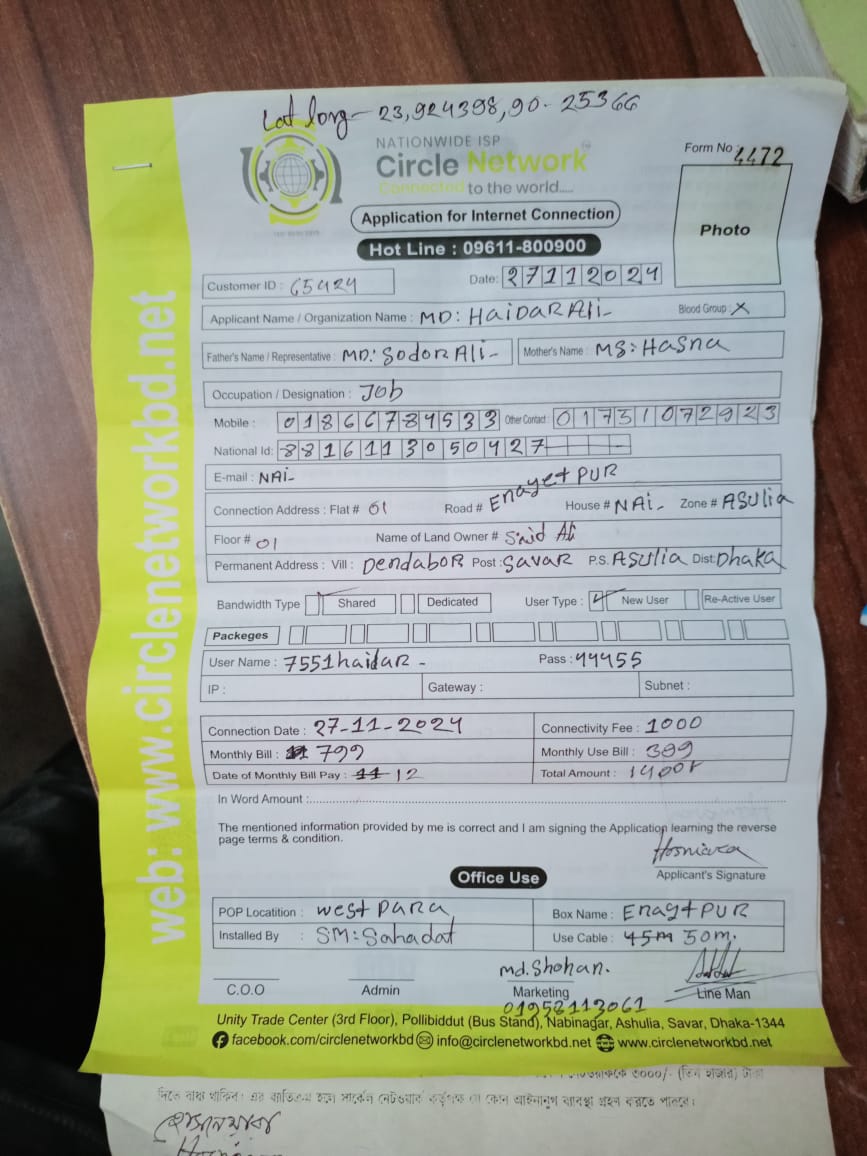 Lat long- 23,924398,90-25366
NATIONWIDE ISP
Circle Network
Connected to the world.....
Form No 4472
Photo
Application for Internet Connection
Hot Line : 09611-800900
Customer ID : 65424 Date: 27112024
Applicant Name / Organization Name : MD: HAIDAR Ali- Blood Group : X
Father's Name / Representative : MD: Sodor Ali- Mother's Name : MS: Hasna
Occupation / Designation : Job
Mobile : 01866784533 Other Contact : 01731072923
National Id: 8816113050427
E-mail : NAi-
Connection Address : Flat # 01 Road # Enayet PUR House # NAi- Zone # ASUlia
Floor # 01 Name of Land Owner # Said Ali
Permanent Address : Vill : Dendabor Post : Savar P.S. ASUlia Dist: Dhaka
Bandwidth Type Shared Dedicated User Type : New User Re-Active User
Packeges
User Name : 7551haidar - Pass : 44455
IP : Gateway : Subnet :
Connection Date : 27-11-2024 Connectivity Fee : 1000
Monthly Bill : 799 Monthly Use Bill : 399
Date of Monthly Bill Pay : 11 12 Total Amount : 1400
In Word Amount :
The mentioned information provided by me is correct and I am signing the Application learning the reverse
page terms & condition.
Applicant's Signature
Office Use
POP Locatition : west para Box Name : Enayt PUR
Installed By : SM: Sahadat Use Cable : 45m 50m.
md. Shohan.
C.O.O Admin Marketing Line Man
01958113061
Unity Trade Center (3rd Floor), Pollibiddut (Bus Stand), Nabinagar, Ashulia, Savar, Dhaka-1344
facebook.com/circlenetworkbd info@circlenetworkbd.net www.circlenetworkbd.net
web: www.circlenetworkbd.net
৩০০০/- (তিন হাজার) টাকা
দিতে বাধ্য থাকিব। এর ব্যতিক্রম হলে সার্কেল নেটওয়ার্ক কর্তৃপক্ষ যে কোন আইনানুগ ব্যবস্থা গ্রহন করতে পারবে।